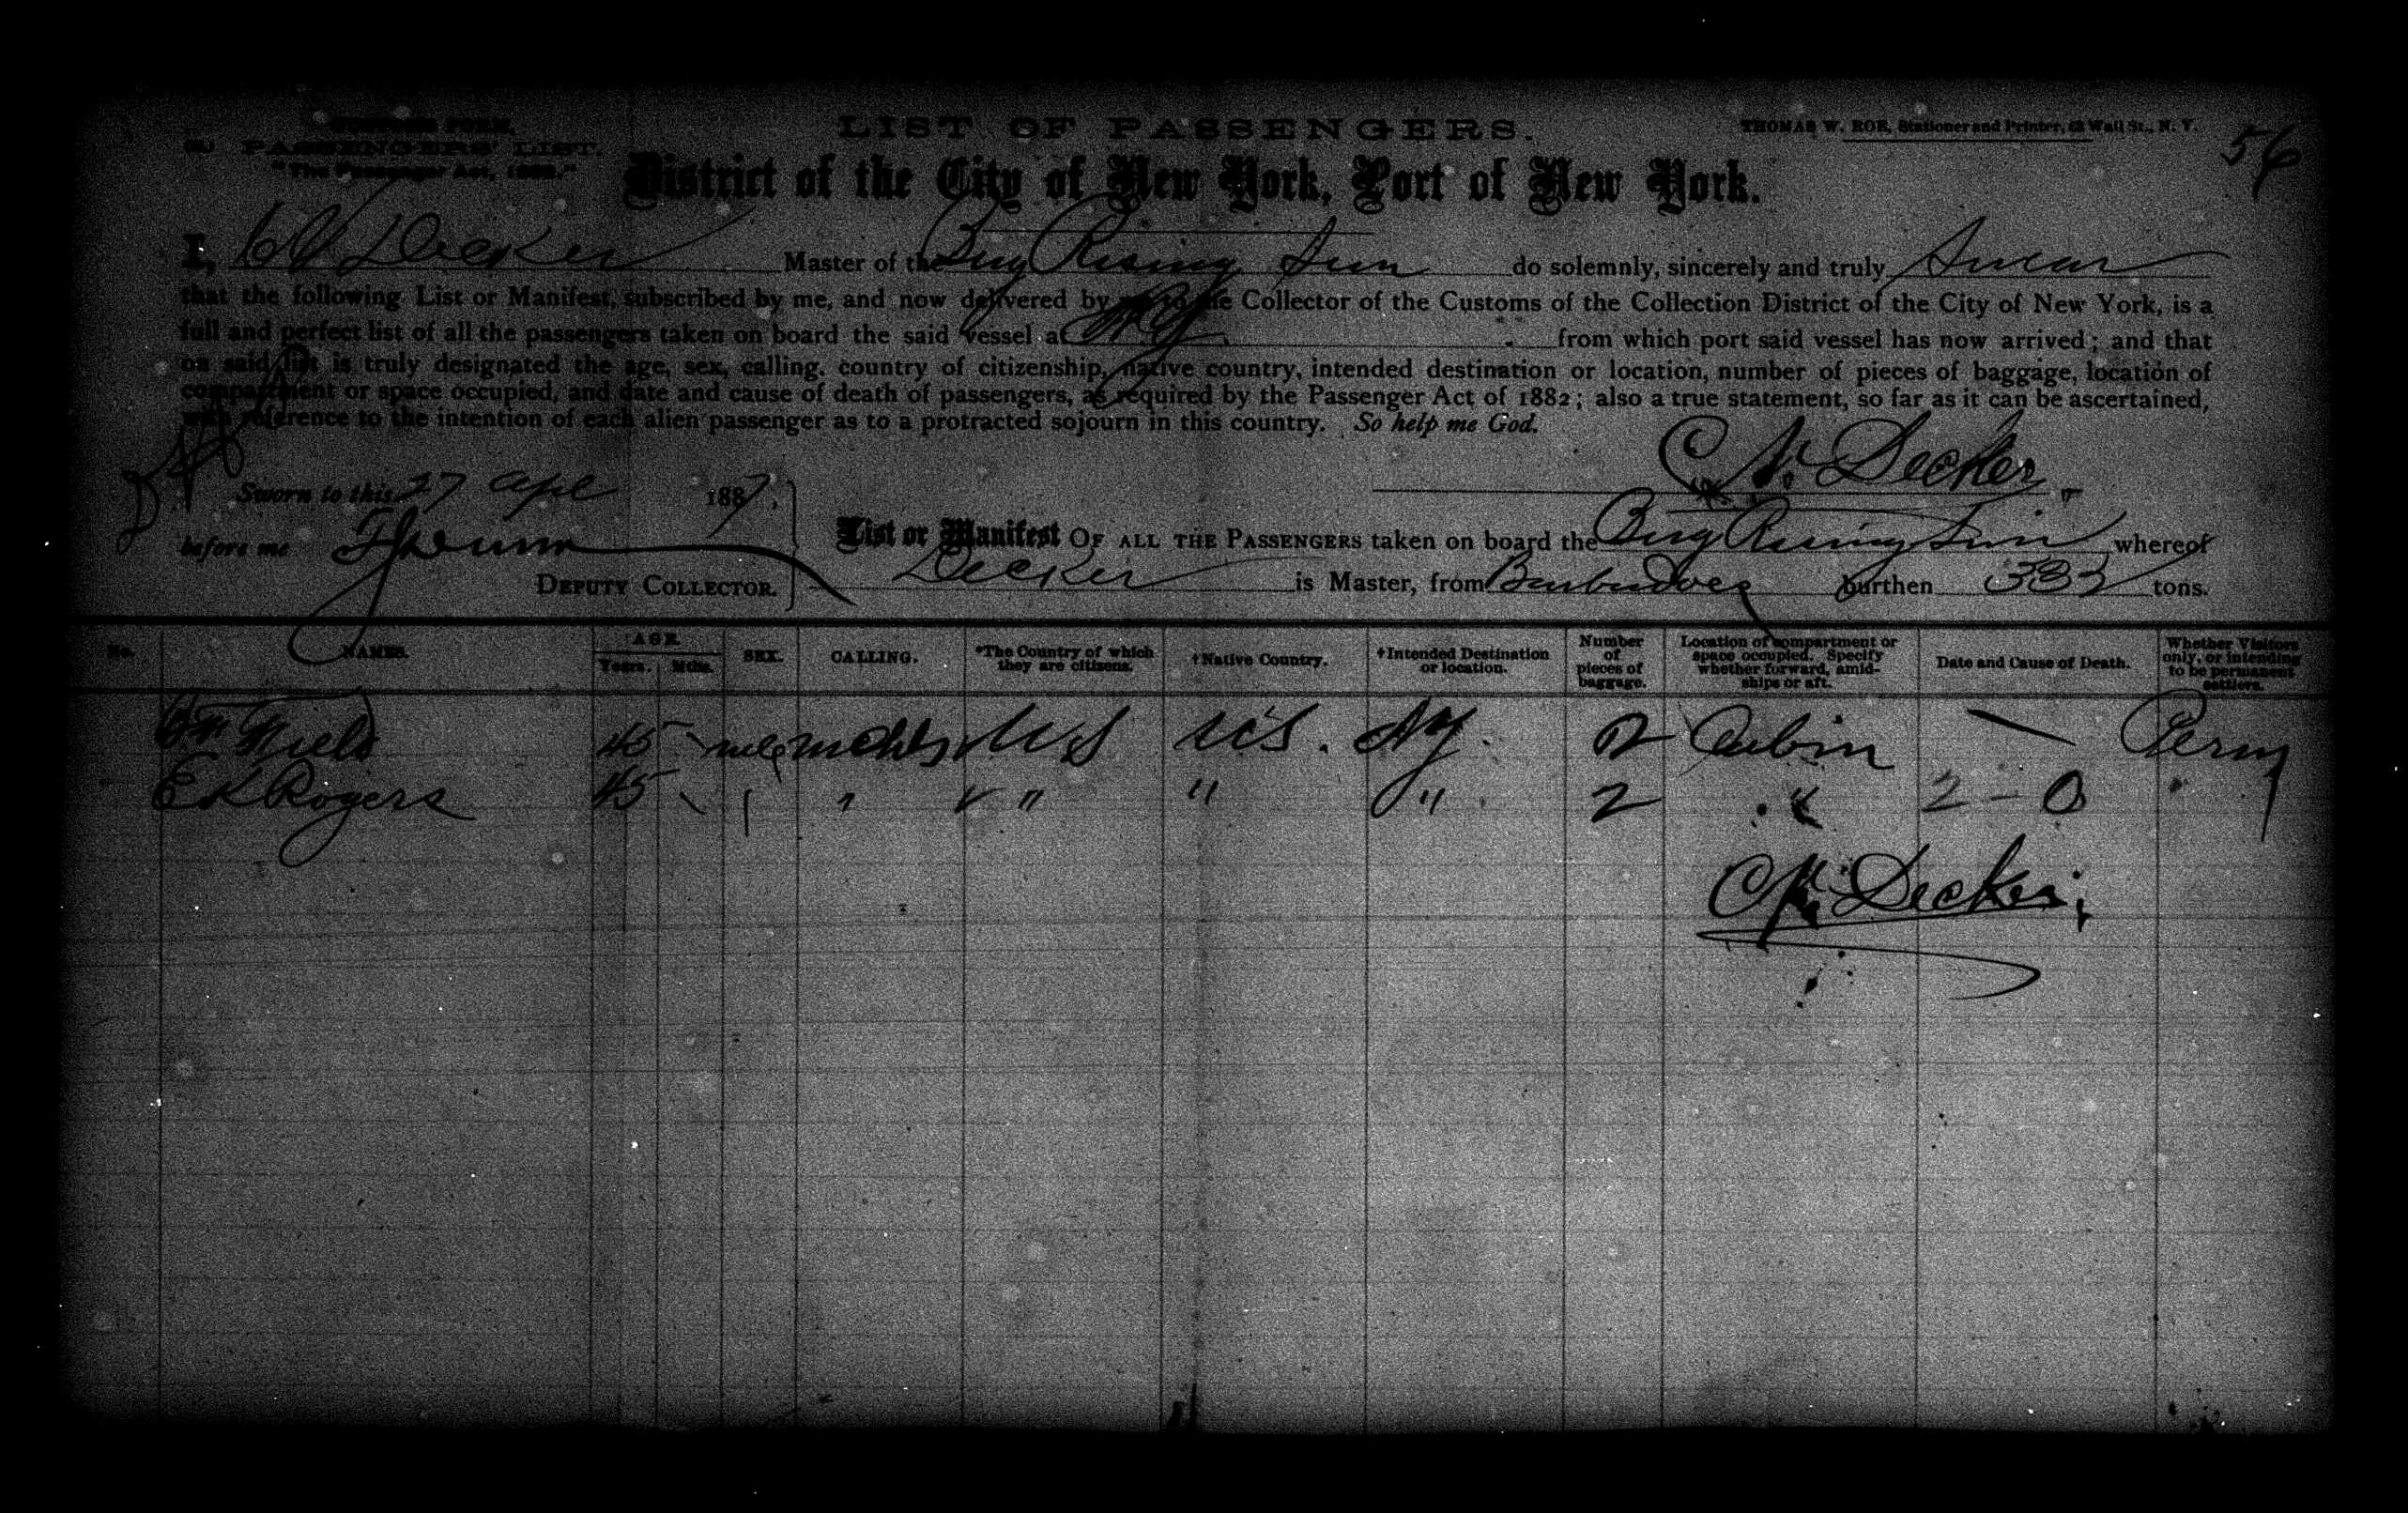 CUSTOMS FORM.
PASSENGERS' LIST.
"The Passenger Act, 1882."
LIST OF PASSENGERS.
THOMAS W. ROE, Stationer and Printer, 62 Wall St., N. Y.
56
District of the City of New York, Port of New York.
I, Decker Master of the Brig Rising Sun do solemnly, sincerely and truly Swear
that the following List or Manifest, subscribed by me, and now delivered by me to the Collector of the Customs of the Collection District of the City of New York, is a
full and perfect list of all the passengers taken on board the said vessel at from which port said vessel has now arrived; and that
on said list is truly designated the age, sex, calling, country of citizenship, native country, intended destination or location, number of pieces of baggage, location of
compartment or space occupied, and date and cause of death of passengers, as required by the Passenger Act of 1882; also a true statement, so far as it can be ascertained,
with reference to the intention of each alien passenger as to a protracted sojourn in this country. So help me God.
C. N. Decker
Sworn to this 27 Apl 1887,
before me
DEPUTY COLLECTOR.
List or Manifest OF ALL THE PASSENGERS taken on board the Brig Rising Sun whereof
Decker is Master, from Barbadoes burthen 333 tons.
No. NAMES. AGE. Years. Mths. SEX. CALLING. *The Country of which they are citizens. †Native Country. †Intended Destination or location. Number of pieces of baggage. Location of compartment or space occupied. Specify whether forward, amidships or aft. Date and Cause of Death. Whether Visitors only, or intending to be permanent settlers.
Wm 45 US US. NY. 2 Cabin Perm
E K Rogers 45 " " " " 2 " 2 - 0 "
C N. Decker